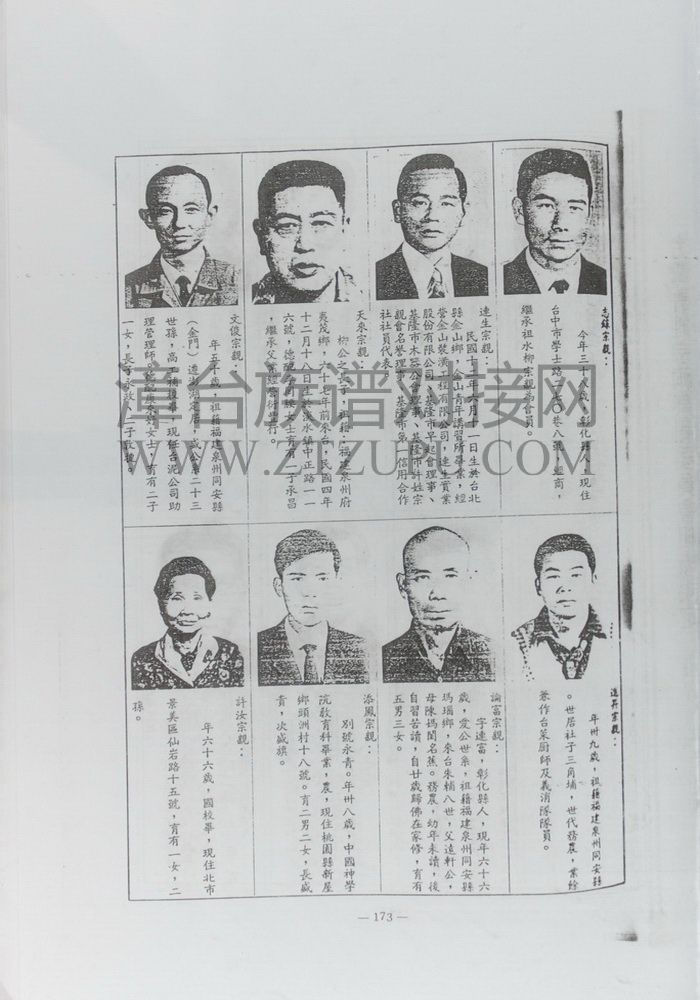 志錄宗親：
今年三十八歲，彰化縣人，現住
台中市學士路一七〇巷八號，經商，
繼承祖水柳宗親為會員。
連生宗親：
民國十三年六月十一日生於台北
縣金山鄉，金山青年講習所畢業，經
營金山裝潢工程有限公司、連生實業
股份有限公司、基隆市早起會理事、
基隆市木器公會理事、基隆市許姓宗
親會名譽理事、基隆市第一信用合作
社社員代表。
天來宗親：
柳公之長子，祖籍：福建泉州府
十二月十八日生於淡水鎮中正路一一
，繼承父業經營衛生行。
文俊宗親：
年五十歲，祖籍福建泉州同安縣
世孫，高工補校畢，現任台泥公司助
一女，長子承啟，二子啟健。
進昇宗親：
年卅九歲，祖籍福建泉州同安縣
。世居社子三角埔，世代務農，業餘
兼作台菜厨師及義消隊隊員。
論富宗親：
字連富，彰化縣人，現年六十六
歲，愛公世系，祖籍福建泉州同安縣
瑪瑙鄉，來台朱補八世，父遠軒公，
母陳媽閏名蕉。務農，幼年未讀，後
自習苦讀，自廿歲歸佛在家修，育有
五男三女。
添鳳宗親：
別號永青。年卅八歲，中國神學
院教育科畢業，農，現住桃園縣新屋
鄉頭洲村十八號。育二男二女，長盛
貴，次盛旗。
許汝宗親：
年六十六歲，國校畢，現住北市
景美區仙岩路十五號，育有一女，二
孫。
— 173 —
漳台族譜对接网
WWW.ZTZUPU.COM